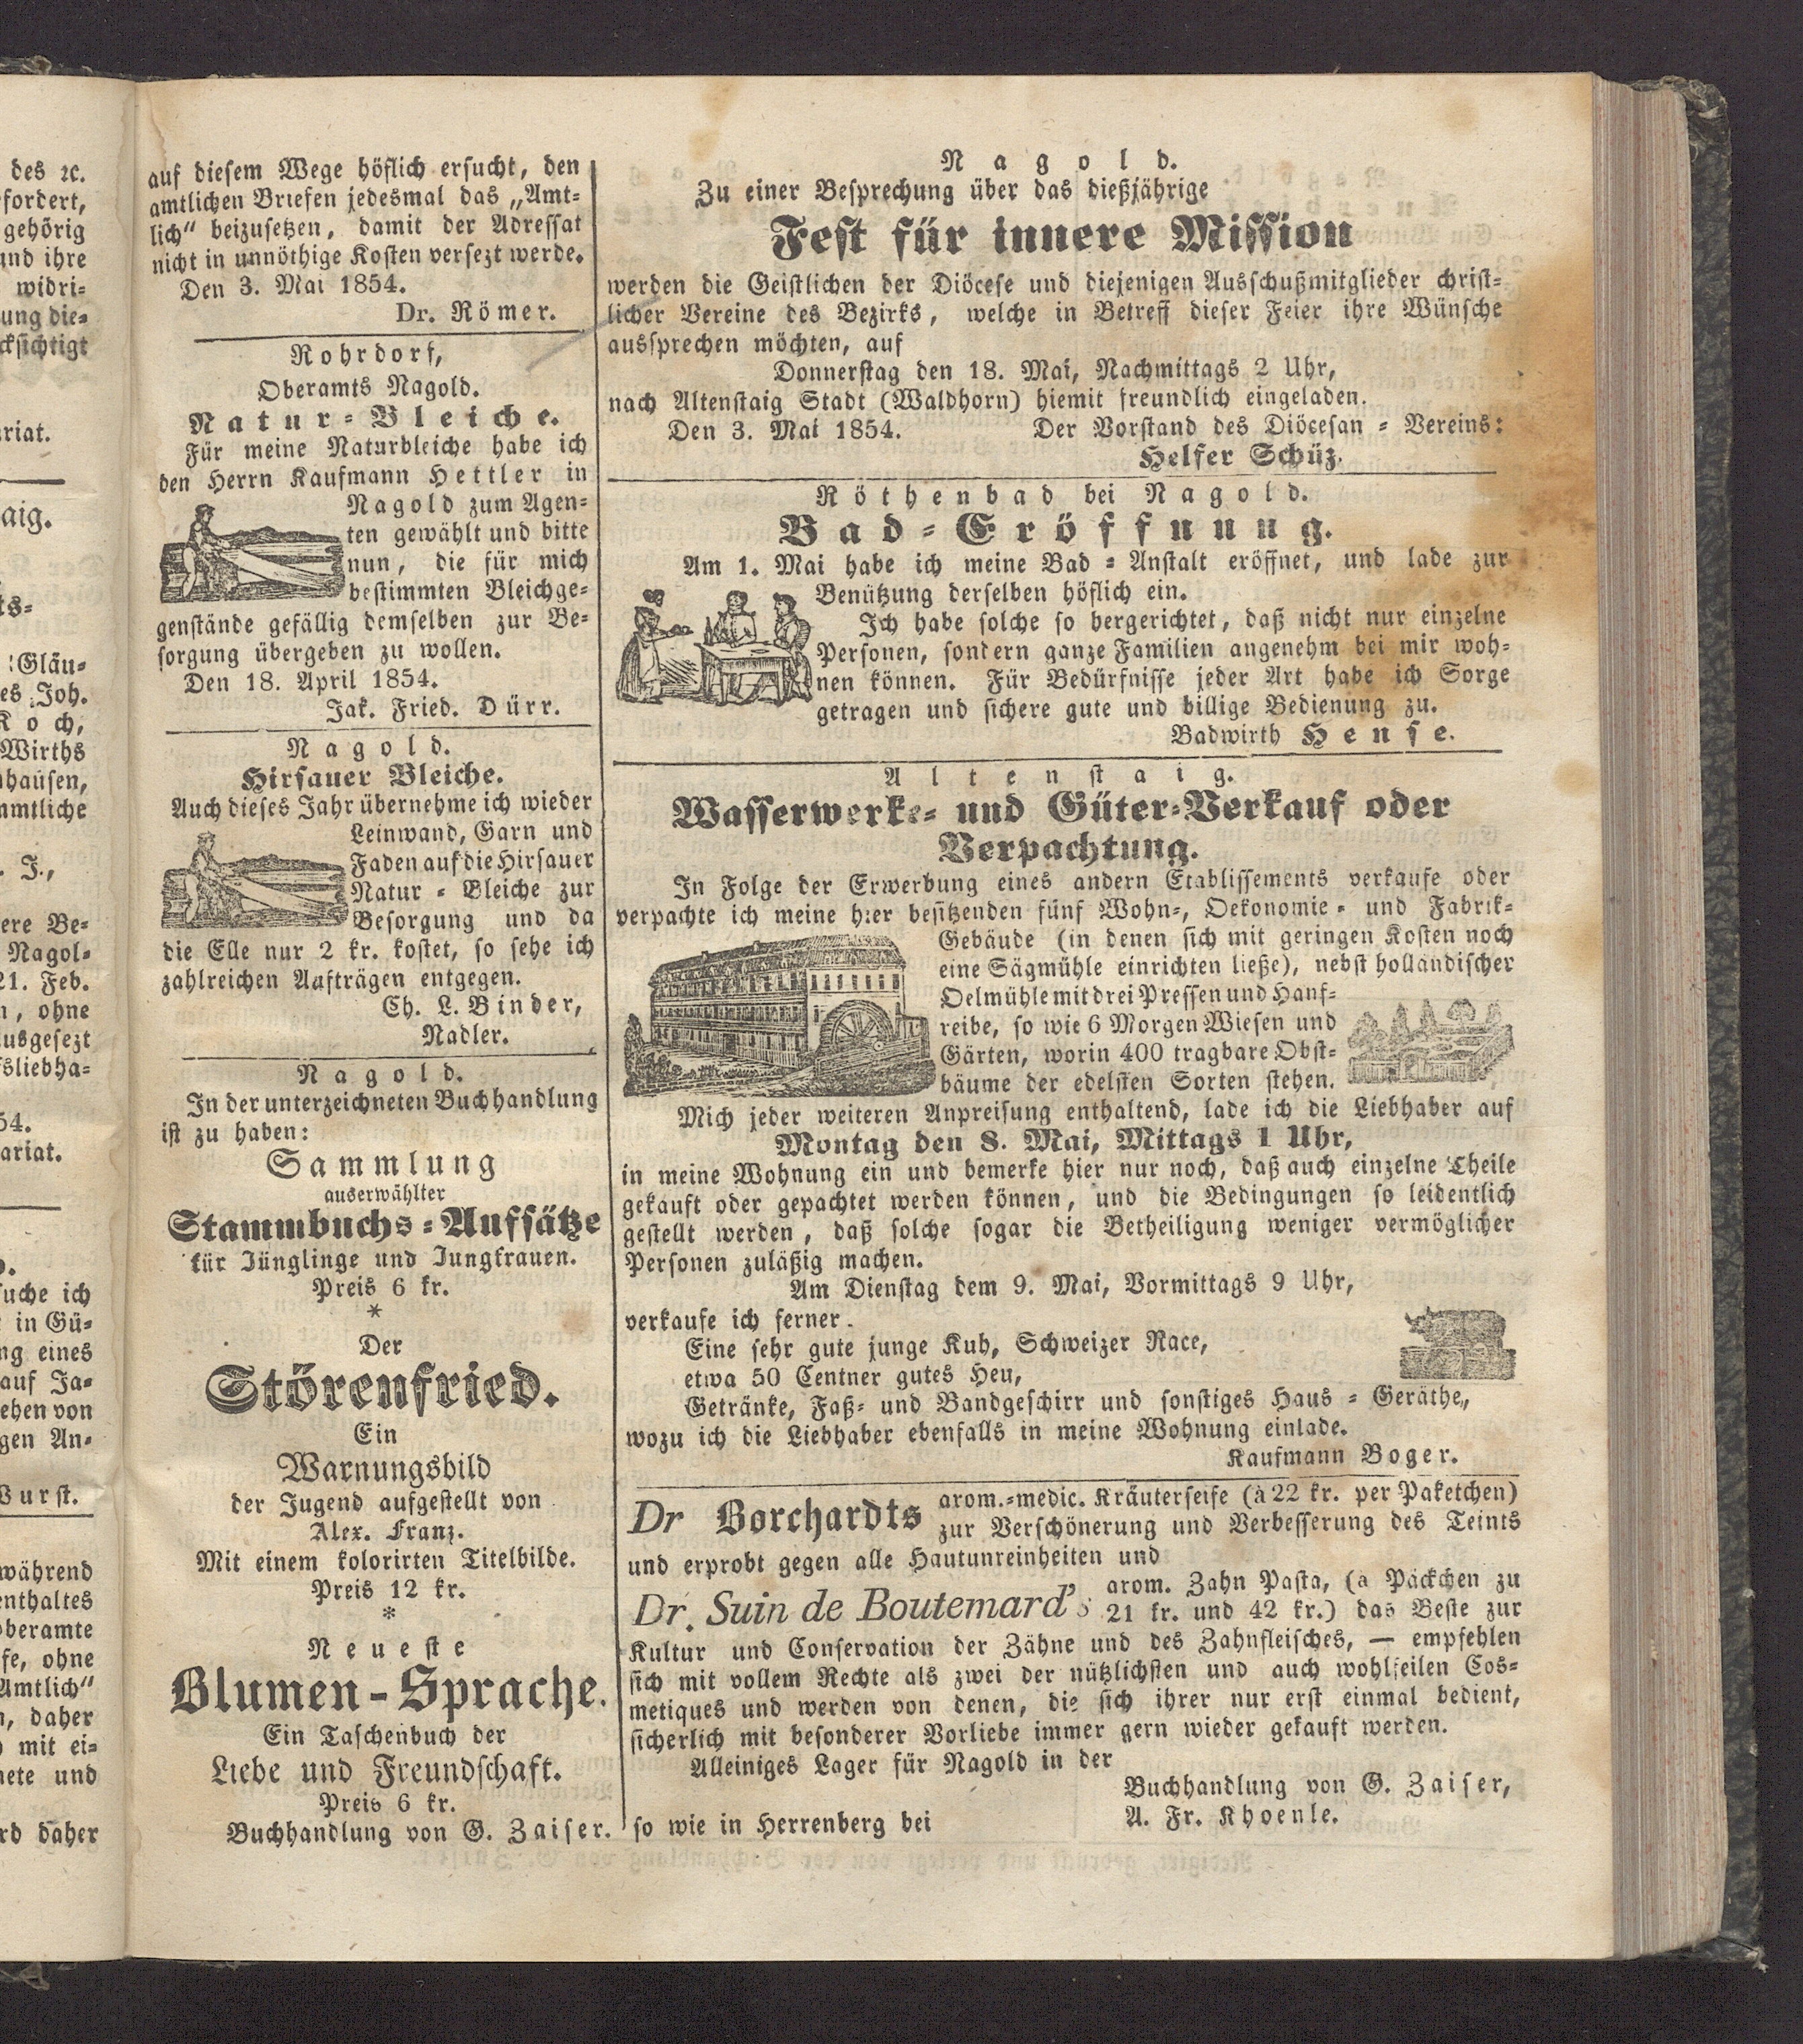 des ꝛc.
fordert,
gehörig
und ihre
widri-
ung die-
cksichtigt
riat.
aig.
ts-
Gläu-
es Joh.
Koch,
Wirths
hausen,
mmtliche
J.,
ere Be-
Nagol-
21. Feb.
n, ohne
usgesezt
fsliebha-
54.
ariat.
suche ich
in Gü-
ng eines
auf Ja-
ehen von
gen An-
Wurst.
während
enthaltes
beramte
fe, ohne
Amtlich"
n, daher
mit ei-
nete und
rd daher
auf diesem Wege höflich ersucht, den
amtlichen Briefen jedesmal das „Amt-
lich" beizusetzen, damit der Adressat
nicht in unnöthige Kosten versezt werde.
Den 3. Mai 1854.
Dr. Römer.
Rohrdorf,
Oberamts Nagold.
Natur-Bleiche.
Für meine Naturbleiche habe ich
den Herrn Kaufmann Hettler in
Nagold zum Agen-
ten gewählt und bitte
nun, die für mich
bestimmten Bleichge-
genstände gefällig demselben zur Be-
sorgung übergeben zu wollen.
Den 18. April 1854.
Jak. Fried. Dürr.
Nagold.
Hirsauer Bleiche.
Auch dieses Jahr übernehme ich wieder
Leinwand, Garn und
Faden auf die Hirsauer
Natur-Bleiche zur
Besorgung und da
die Elle nur 2 kr. kostet, so sehe ich
zahlreichen Aufträgen entgegen.
Ch. L. Binder,
Nadler.
Nagold.
In der unterzeichneten Buchhandlung
ist zu haben:
Sammlung
auserwählter
Stammbuchs-Aufsätze
für Jünglinge und Jungfrauen.
Preis 6 kr.
*
Der
Störenfried.
Ein
Warnungsbild
der Jugend aufgestellt von
Alex. Franz.
Mit einem kolorirten Titelbilde.
Preis 12 kr.
*
Neueste
Blumen-Sprache.
Ein Taschenbuch der
Liebe und Freundschaft.
Preis 6 kr.
Buchhandlung von G. Zaiser.
Nagold.
Zu einer Besprechung über das dießjährige
Fest für innere Mission
werden die Geistlichen der Diöcese und diejenigen Ausschußmitglieder christ-
licher Vereine des Bezirks, welche in Betreff dieser Feier ihre Wünsche
aussprechen möchten, auf
Donnerstag den 18. Mai, Nachmittags 2 Uhr,
nach Altenstaig Stadt (Waldhorn) hiemit freundlich eingeladen.
Den 3. Mai 1854. Der Vorstand des Diöcesan-Vereins:
Helfer Schüz.
Röthenbad bei Nagold.
Bad-Eröffnung.
Am 1. Mai habe ich meine Bad-Anstalt eröffnet, und lade zur
Benützung derselben höflich ein.
Ich habe solche so hergerichtet, daß nicht nur einzelne
Personen, sondern ganze Familien angenehm bei mir woh-
nen können. Für Bedürfnisse jeder Art habe ich Sorge
getragen und sichere gute und billige Bedienung zu.
Badwirth Hense.
Altenstaig.
Wasserwerke- und Güter-Verkauf oder
Verpachtung.
In Folge der Erwerbung eines andern Etablissements verkaufe oder
verpachte ich meine hier besitzenden fünf Wohn-, Oekonomie- und Fabrik-
Gebäude (in denen sich mit geringen Kosten noch
eine Sägmühle einrichten ließe), nebst holländischer
Oelmühle mit drei Pressen und Hanf-
reibe, so wie 6 Morgen Wiesen und
Gärten, worin 400 tragbare Obst-
bäume der edelsten Sorten stehen.
Mich jeder weiteren Anpreisung enthaltend, lade ich die Liebhaber auf
Montag den 8. Mai, Mittags 1 Uhr,
in meine Wohnung ein und bemerke hier nur noch, daß auch einzelne Theile
gekauft oder gepachtet werden können, und die Bedingungen so leidentlich
gestellt werden, daß solche sogar die Betheiligung weniger vermöglicher
Personen zuläßig machen.
Am Dienstag dem 9. Mai, Vormittags 9 Uhr,
verkaufe ich ferner.
Eine sehr gute junge Kuh, Schweizer Race,
etwa 50 Centner gutes Heu,
Getränke, Faß- und Bandgeschirr und sonstiges Haus-Geräthe,
wozu ich die Liebhaber ebenfalls in meine Wohnung einlade.
Kaufmann Boger.
Dr Borchardts arom.-medic. Kräuterseife (à 22 kr. per Paketchen)
zur Verschönerung und Verbesserung des Teints
und erprobt gegen alle Hautunreinheiten und
Dr. Suin de Boutemard's arom. Zahn Pasta, (à Päckchen zu
21 kr. und 42 kr.) das Beste zur
Kultur und Conservation der Zähne und des Zahnfleisches, — empfehlen
sich mit vollem Rechte als zwei der nützlichsten und auch wohlfeilen Cos-
metiques und werden von denen, die sich ihrer nur erst einmal bedient,
sicherlich mit besonderer Vorliebe immer gern wieder gekauft werden.
Alleiniges Lager für Nagold in der
Buchhandlung von G. Zaiser,
so wie in Herrenberg bei A. Fr. Khoenle.